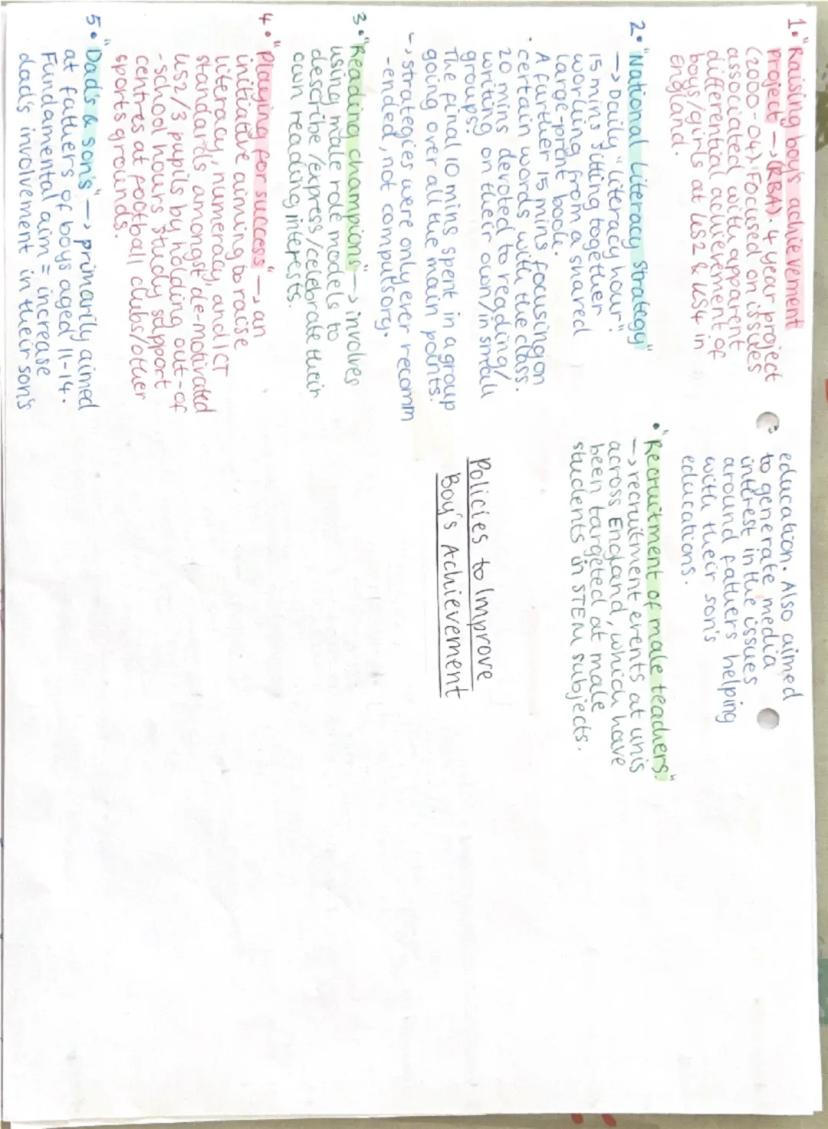 1. "Raising boy's achievement
project → (RBA). 4 year project
(2000-04). Focused on issues
associated with apparent
differential achievement of
boys/girls at KS2 & KS4 in
England.
2. "National Literacy Strategy"
→ Daily "literacy hour".
15 mins sitting together
working from a shared
large-print book.
A further 15 mins focusing on
certain words with the class.
20 mins devoted to reading/
writing on their own/in small
groups.
The final 10 mins spent in a group
going over all the main points.
→ strategies were only ever recomm
-ended, not compulsory.
3. "Reading champions" → involves
using male role models to
describe/express/celebrate their
own reading interests.
4. "Playing for success" → an
initiative aiming to raise
literacy, numeracy, and ICT
standards amongst de-motivated
KS2/3 pupils by holding out-of
-school hours study support
centres at football clubs/other
sports grounds.
5. "Dad's & sons" → primarily aimed
at fathers of boys aged 11-14.
Fundamental aim = increase
dad's involvement in their son's
education. Also aimed
to generate media
interest in the issues
around fathers helping
with their son's
educations.
• "Recruitment of male teachers"
→ recruitment events at unis
across England, which have
been targeted at male
students in STEM subjects.
Policies to Improve
Boy's Achievement